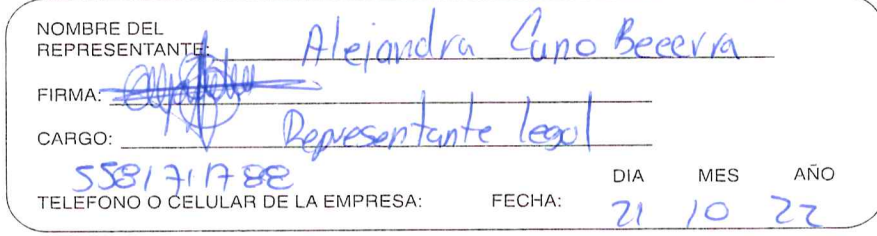 NOMBRE DEL
REPRESENTANTE: Alejandra Cano Becerra
FIRMA:
CARGO: Representante legal
5581711788
TELEFONO O CELULAR DE LA EMPRESA: FECHA: DIA MES AÑO
21 10 22